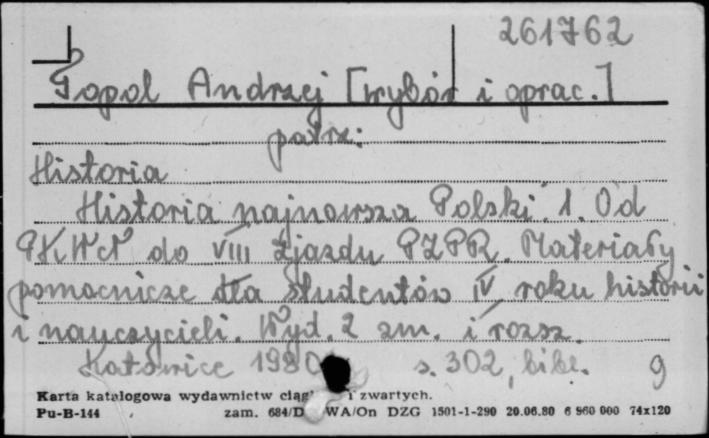 261762
Topol Andrzej [wybór i oprac.]
patrz:
Historia
Historia najnowsza Polski. 1. Od
PKWN do VIII Zjazdu PZPR. Materiały
pomocnicze dla studentów IV roku historii
i nauczycieli. Wyd. 2 zm. i rozsz.
Katowice 1980 s. 302, bibl. 9
Karta katalogowa wydawnictw ciąg i zwartych.
Pu-B-144 zam. 684/D WA/On DZG 1501-1-290 20.06.80 6 960 000 74x120